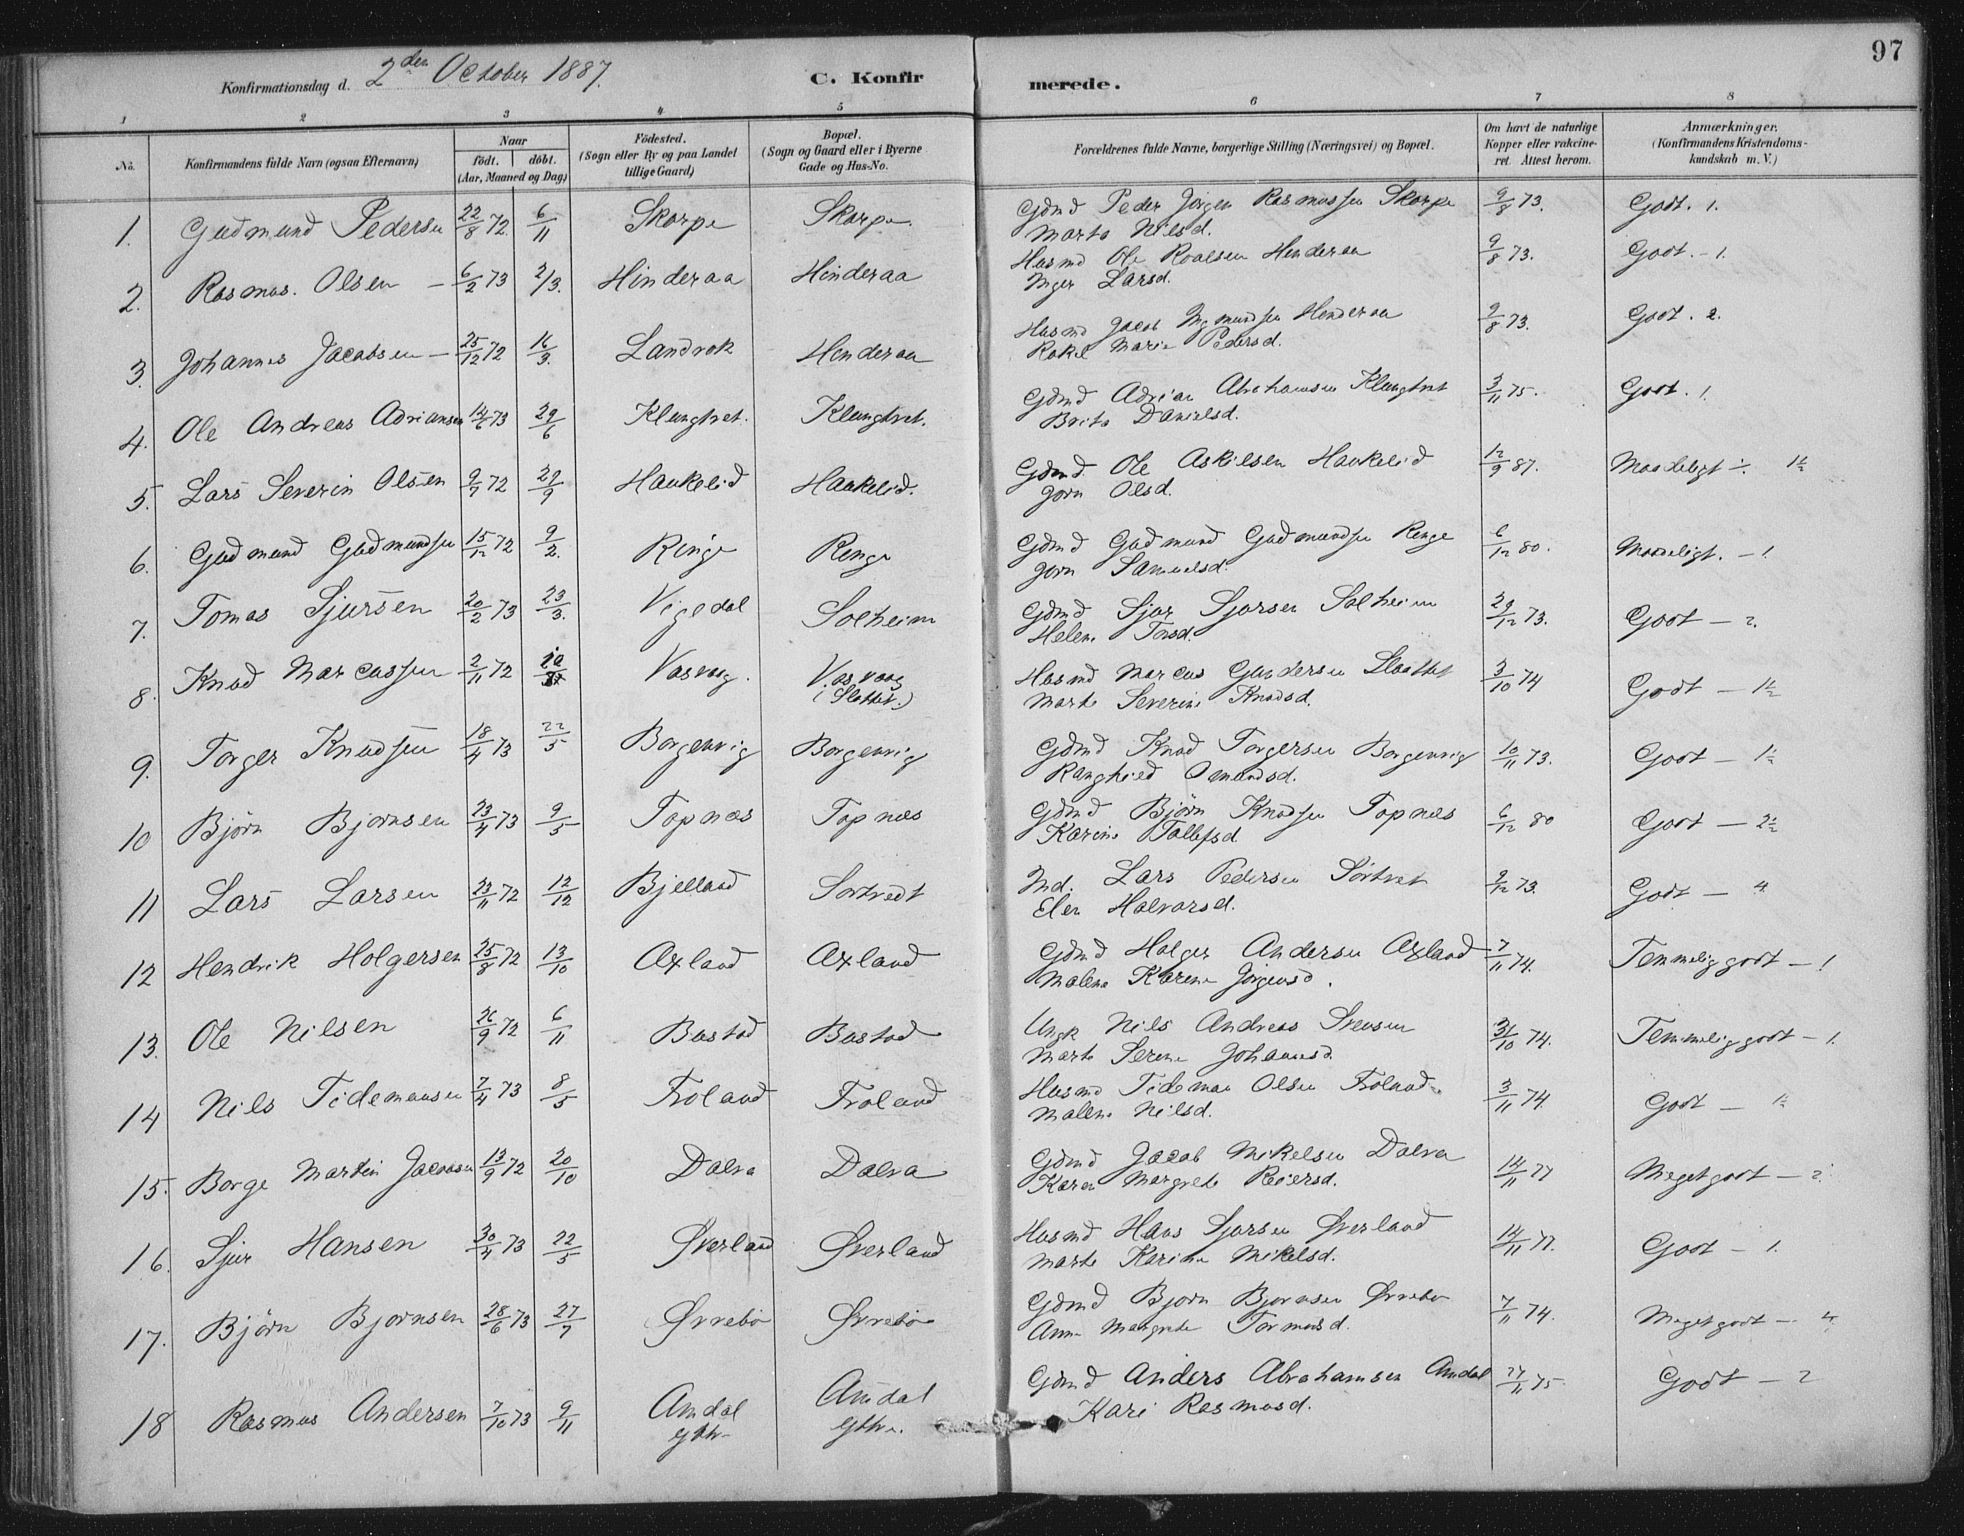 97
Konfirmationsdag d. 2den October 1887.
C. Konfirmerede.
1 2 3 4 5 6 7 8
No. Konfirmandens fulde Navn (ogsaa Efternavn) Naar födt. döbt. (Aar, Maaned og Dag) Födested. (Sogn eller By og paa Landet tillige Gaard) Bopæl. (Sogn og Gaard eller i Byerne Gade og Hus-No. Forældrenes fulde Navne, borgerlige Stilling (Næringsvei) og Bopæl. Om havt de naturlige Kopper eller vakcineret. Attest herom. Anmærkninger. (Konfirmandens Kristendomskundskab m. V.)
1. Gudmund Pedersen 22/8 72 6/11 Skorpe Skorpe. Gdmd Peder Jörgen Rasmussen Skorpe 9/8 73. Godt. 1.
Marta Nilsd.
2. Rasmus Olsen – 6/2 73 2/3. Hinderaa Hinderaa Husmd Ole Roalsen Hinderaa 9/8 73. Godt. – 1.
Inger Larsd.
3. Johannes Jacobsen – 25/12 72 16/3. Landvok Hinderaa Husmd Jacob Henderaa 9/8 73. Godt. 2.
Rakel Marie Pedersd.
4. Ole Andreas Adriansen 14/6 73 29/6 Klungtvet. Klungtvet. Gdmd Adrian Abrahamsen Klungtvet 3/11 75. Godt. 1.
Brita Danielsd.
5. Lars Severin Olsen 9/7 72 29/9 Haukelid Haukelid. Gdmd Ole Askilsen Haukelid 12/9 87. Maadeligt 1½
Jorn Olsd.
6. Gudmund Gudmundsen 15/12 72 9/2. Ringe Ringe Gdmd Gudmund Gudmundsen Ringe 6/12 80. Maadeligt. – 1.
Jorn Samuelsd.
7. Tomas Sjursen 20/2 73 23/3. Vigedal Solheim Gdmd Sjur Sjursen Solheim 29/12 73. Godt – 2.
Helene Torsd.
8. Knud Marcussen 2/11 72 Vasvaag. Vasvaag (i Slottet.) Husmd Marcus Gundersen Slottet 3/10 74 Godt – 1½
Marte Severine Knudsd.
9. Torger Knudsen 18/4 73 22/5 Borgenvig Borgenvig Gdmd Knud Torgersen Borgenvig 10/11 73. Godt – 1½
Ranghild Omundsd.
10 Björn Bjornsen 23/4 73 9/5 Topnæs Topnæs Gdmd Björn Knudsen Topnæs 6/12 80 Godt – 2½
Karine Tollefsd
11 Lars Larsen 23/11 72 12/12 Bjelland Sortvedt Ind. Lars Pedersen Sörtvet 2/12 73. Godt – 4
Elen Halvorsd.
12 Hendrik Holgersen 25/8 72 13/10 Axland Axland Gdmd Holger Andersen Axland 7/11 74. Temmelig godt – 1
Malene Karene Jörgensd.
13. Ole Nilsen 26/9 72 6/11 Bustad Bustad Ungk Nils Andreas Svensen 31/10 74. Temmelig godt – 1.
Marte Serine Johannesd
14 Nils Tidemansen 7/4 73 8/5 Froland Froland Husmd Tideman Olsen Froland 3/11 74. Godt – 1½
Malene Nilsd.
15. Borge Martin Jacobsen 13/9 72 20/10 Dalva Dalva Gdmd Jacob Mikelsen Dalva 14/11 77 Megetgodt – 2.
Karen Margrete Reiersd.
16. Sjur Hansen 30/4 73 22/5 Øverland Øverland Husmd Hans Sjursen Øverland 14/11 77. Godt – 1.
Marte Karine Mikelsd.
17. Björn Bjornsen 28/6 73 27/7 Ørrebö Ørrebö Gdmd Bjorn Bjornsen Ørrebö 7/11 74. Megetgodt –
Anne Margrete Tormodsd.
18 Rasmus Andersen 7/10 73 9/11 Amdal ythre Amdal ythre. Gdmd Anders Abrahamsen Amdal 27/11 75. Godt – 2
Kari Rasmusd.